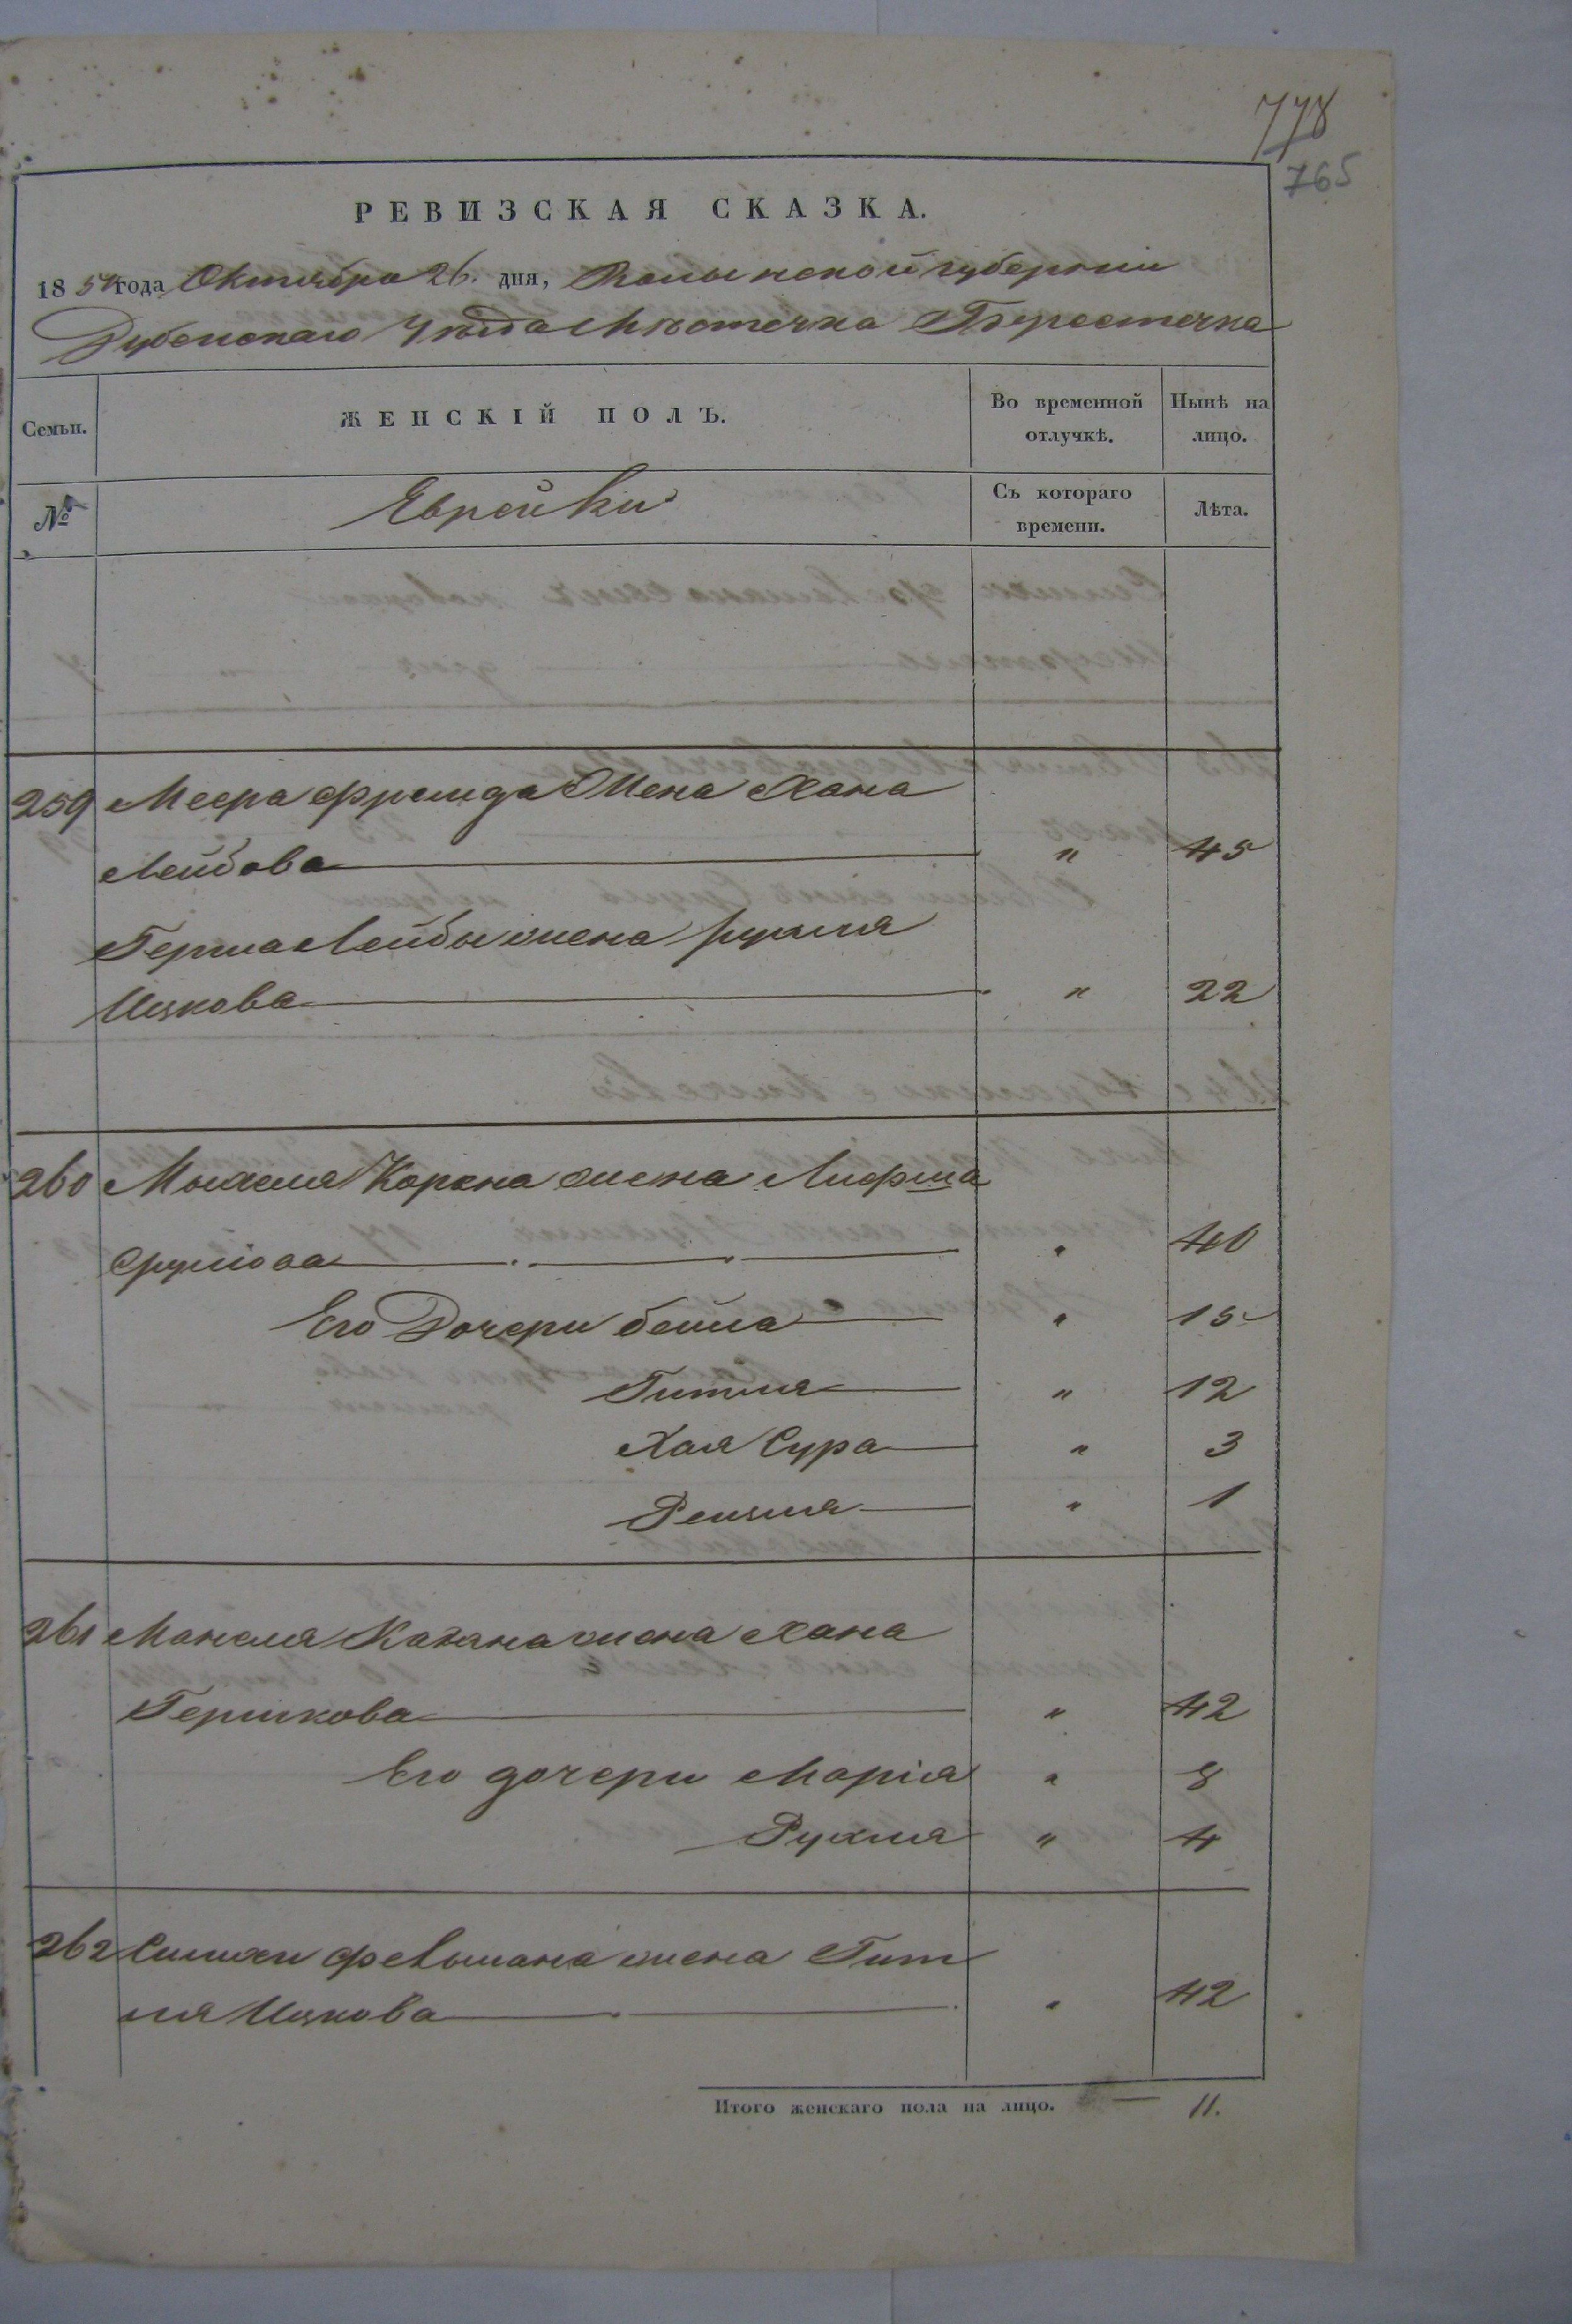 778
765
РЕВИЗСКАЯ СКАЗКА.
1850 года Октября 26. дня, Волынской губернии
Дубенскаго Уѣзда Мѣстечка Берестечка
Семьи.
ЖЕНСКІЙ ПОЛЪ.
Во временной отлучкѣ.
Нынѣ на лицо.
№
Еврейки
Съ котораго времени.
Лѣта.
259 Меера Фрейда Жена Хана
Лейбова " 45
Герша Лейбы жена Рухля
Ицкова " 22
260 Михеля Корена жена Лифша
Срулiова " 40
Его Дочери Бейла " 15
Гитля " 12
Хая Сура " 3
Рейзля " 1
261 Манеля Кагана жена Хана
Гершкова " 42
Его дочери Марія " 8
Рухля " 4
262 Симхи Фельмана жена Гит
ля Ицкова " 42
Итого женскаго пола на лицо. — 11.